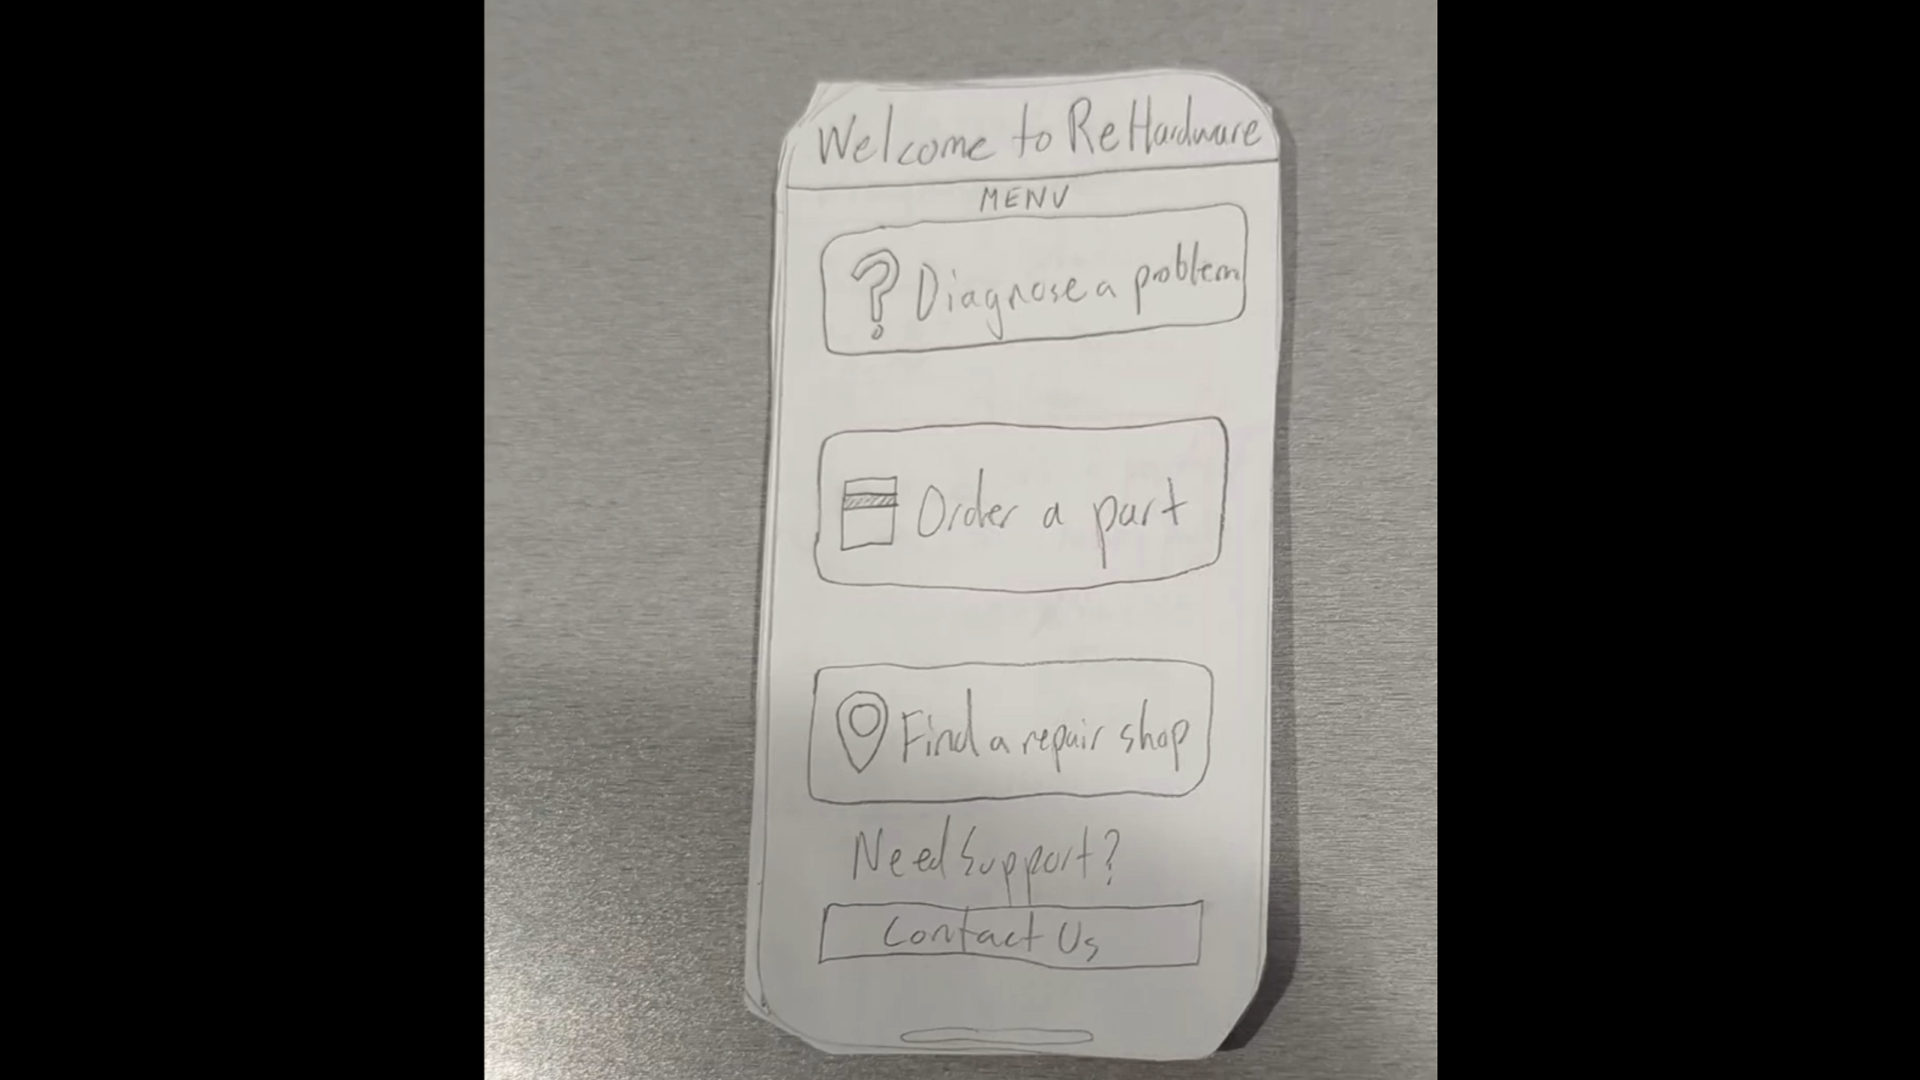 Welcome to ReHardware
MENU
? Diagnose a problem
Order a part
Find a repair shop
Need Support?
Contact Us